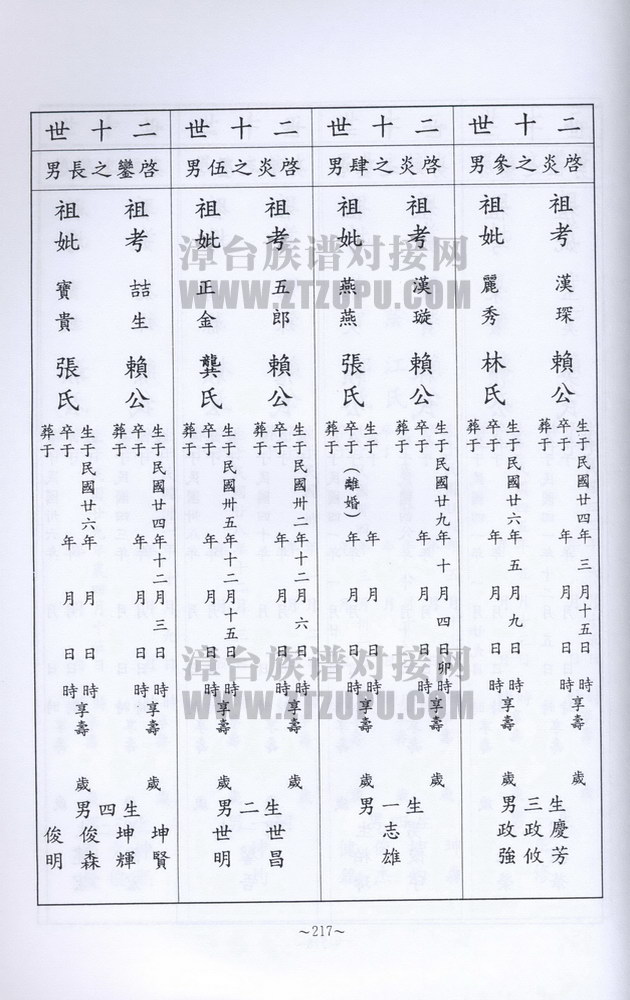 二十世
啓炎之參男
祖考 漢琛 賴公
生于民國廿四年三月十五日時享壽歲
卒于年月日時
葬于
祖妣 麗秀 林氏
生于民國廿六年五月九日時享壽歲
卒于年月日時
葬于
生三男
慶芳
政攸
政強
二十世
啓炎之肆男
祖考 漢璇 賴公
生于民國廿九年十月四日卯時享壽歲
卒于年月日時
葬于
祖妣 燕燕 張氏
生于年月日時享壽歲
卒于(離婚)年月日時
葬于
生一男
志雄
二十世
啓炎之伍男
祖考 五郎 賴公
生于民國卅二年十二月六日時享壽歲
卒于年月日時
葬于
祖妣 正金 龔氏
生于民國卅五年十二月十五日時享壽歲
卒于年月日時
葬于
生二男
世昌
世明
二十世
啓鑾之長男
祖考 喆生 賴公
生于民國廿四年十二月三日時享壽歲
卒于年月日時
葬于
祖妣 寶貴 張氏
生于民國廿六年月日時享壽歲
卒于年月日時
葬于
生四男
坤賢
坤輝
俊森
俊明
~217~
漳台族谱对接网
WWW.ZTZUPU.COM
漳台族谱对接网
WWW.ZTZUPU.COM